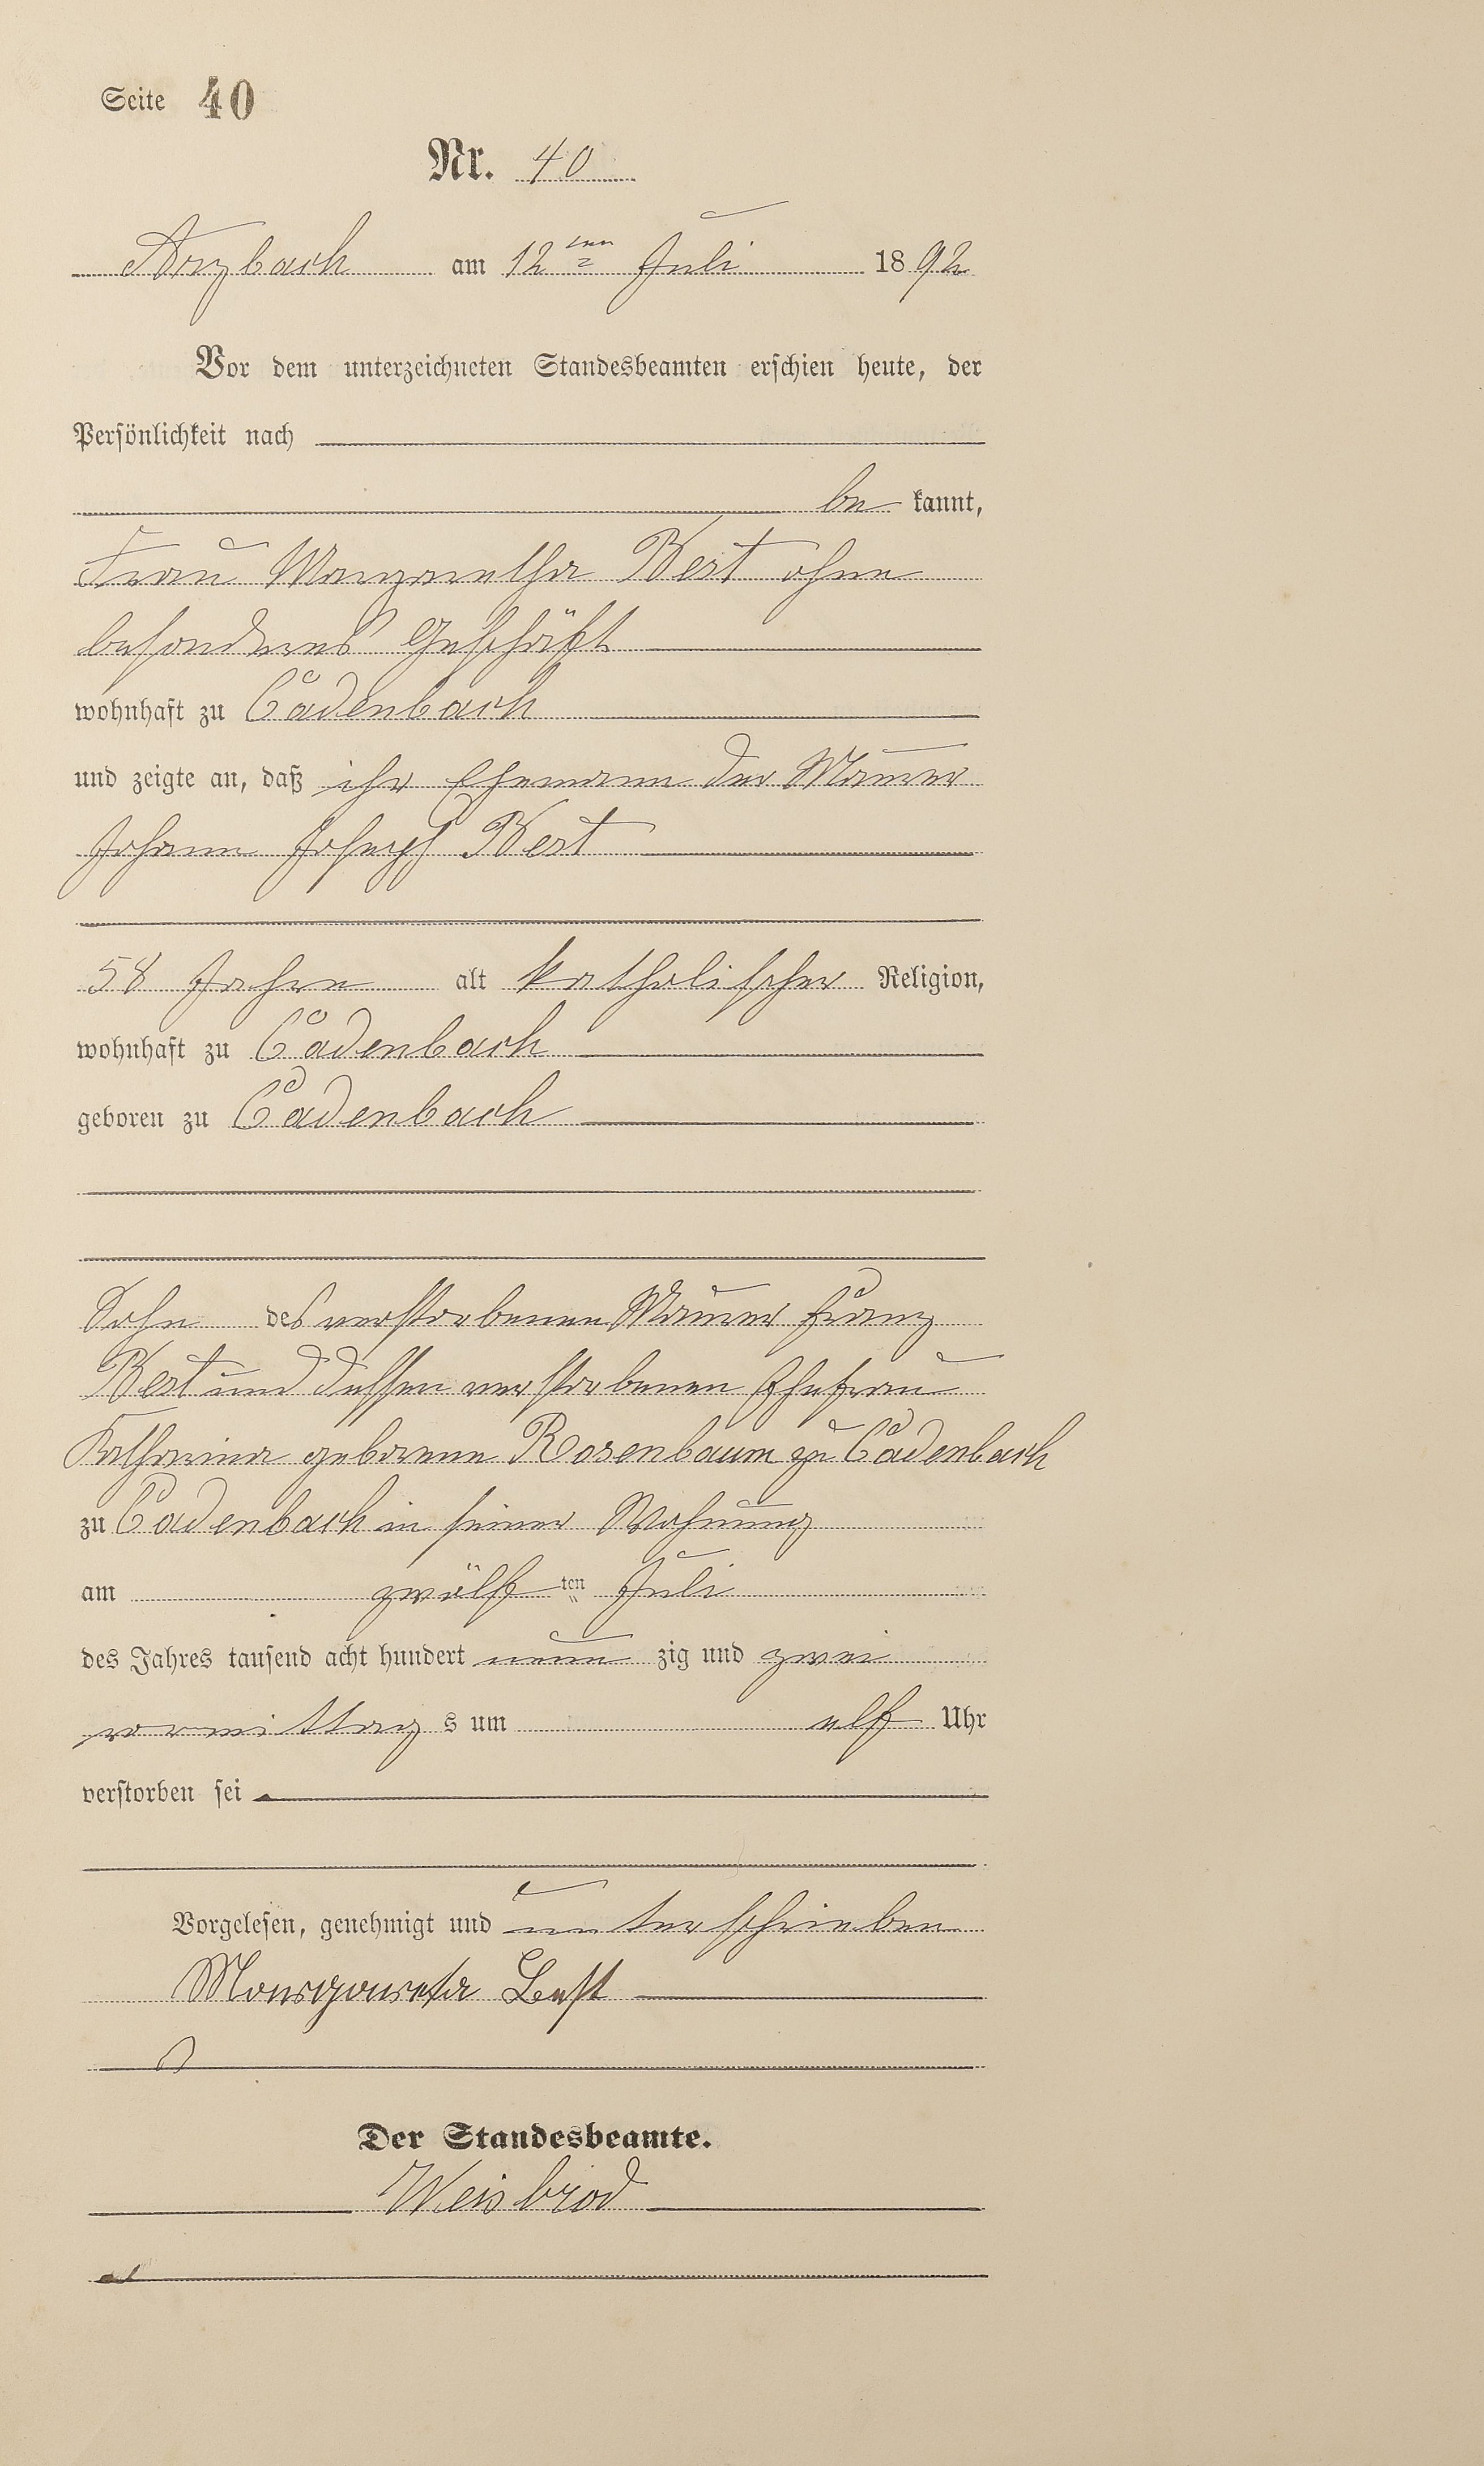 Seite 40
Nr. 40
Arzbach am 12ten Juli 1892
Vor dem unterzeichneten Standesbeamten erschien heute, der
Persönlichkeit nach
be kannt,
Frau Margaretha Best ohne
besonderes Geschäft
wohnhaft zu Cadenbach
und zeigte an, daß ihr Ehemann der Maurer
Johann Joseph Best
58 Jahre alt katholischer Religion,
wohnhaft zu Cadenbach
geboren zu Cadenbach
Sohn des verstorbenen Maurer Franz
Best und dessen verstorbenen Ehefrau
Katharina geborene Rosenbaum zu Cadenbach
zu Cadenbach in seiner Wohnung
am zwölf ten Juli
des Jahres tausend acht hundert neun zig und zwei
vormittag s um elf Uhr
verstorben sei
Vorgelesen, genehmigt und unterschrieben
Margareta Best
Der Standesbeamte.
Weisbrod